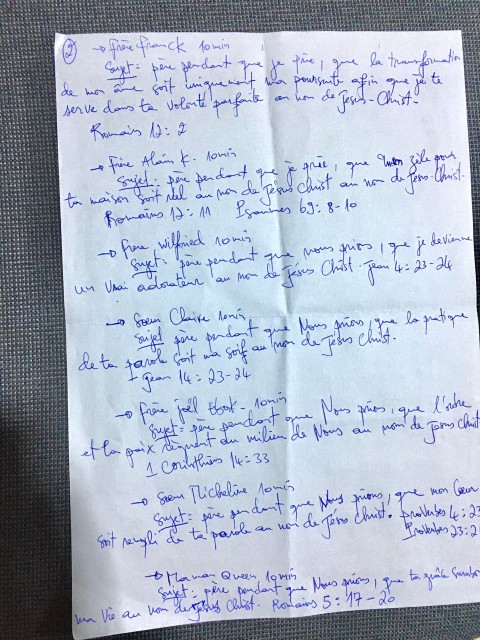 2
→ Frère Franck 10 min
Sujet : père pendant que je prie, que la transformation
de mon âme soit uniquement ma poursuite afin que je te
serve dans ta volonté parfaite au nom de Jésus-Christ.
Romains 12 : 2
→ Frère Alain K. 10 min
Sujet : père pendant que je prie, que mon zèle pour
ta maison soit réel au nom de Jésus Christ au nom de Jésus-Christ.
Romains 12 : 11 Psaumes 69 : 8-10
→ Frère Wilfried 10 min
Sujet : père pendant que nous prions, que je devienne
un vrai adorateur au nom de Jésus Christ. Jean 4 : 23-24
→ Soeur Claire 10 min
Sujet père pendant que Nous prions, que la pratique
de ta parole soit ma soif au nom de Jésus Christ.
- Jean 14 : 23-24
→ Frère Joël 10 min
Sujet : père pendant que Nous prions, que l'ordre
et la paix règnent au milieu de Nous au nom de Jésus Christ
1 Corinthiens 14 : 33
→ Soeur Micheline 10 min
Sujet : père pendant que Nous prions, que mon Coeur
soit rempli de ta parole au nom de Jésus Christ. Proverbes 4 : 23
Proverbes 23 : 2
→ Maman Queen 10 min
Sujet : père pendant que Nous prions, que ta grâce
ma Vie au nom de Jésus Christ. Romains 5 : 17-20